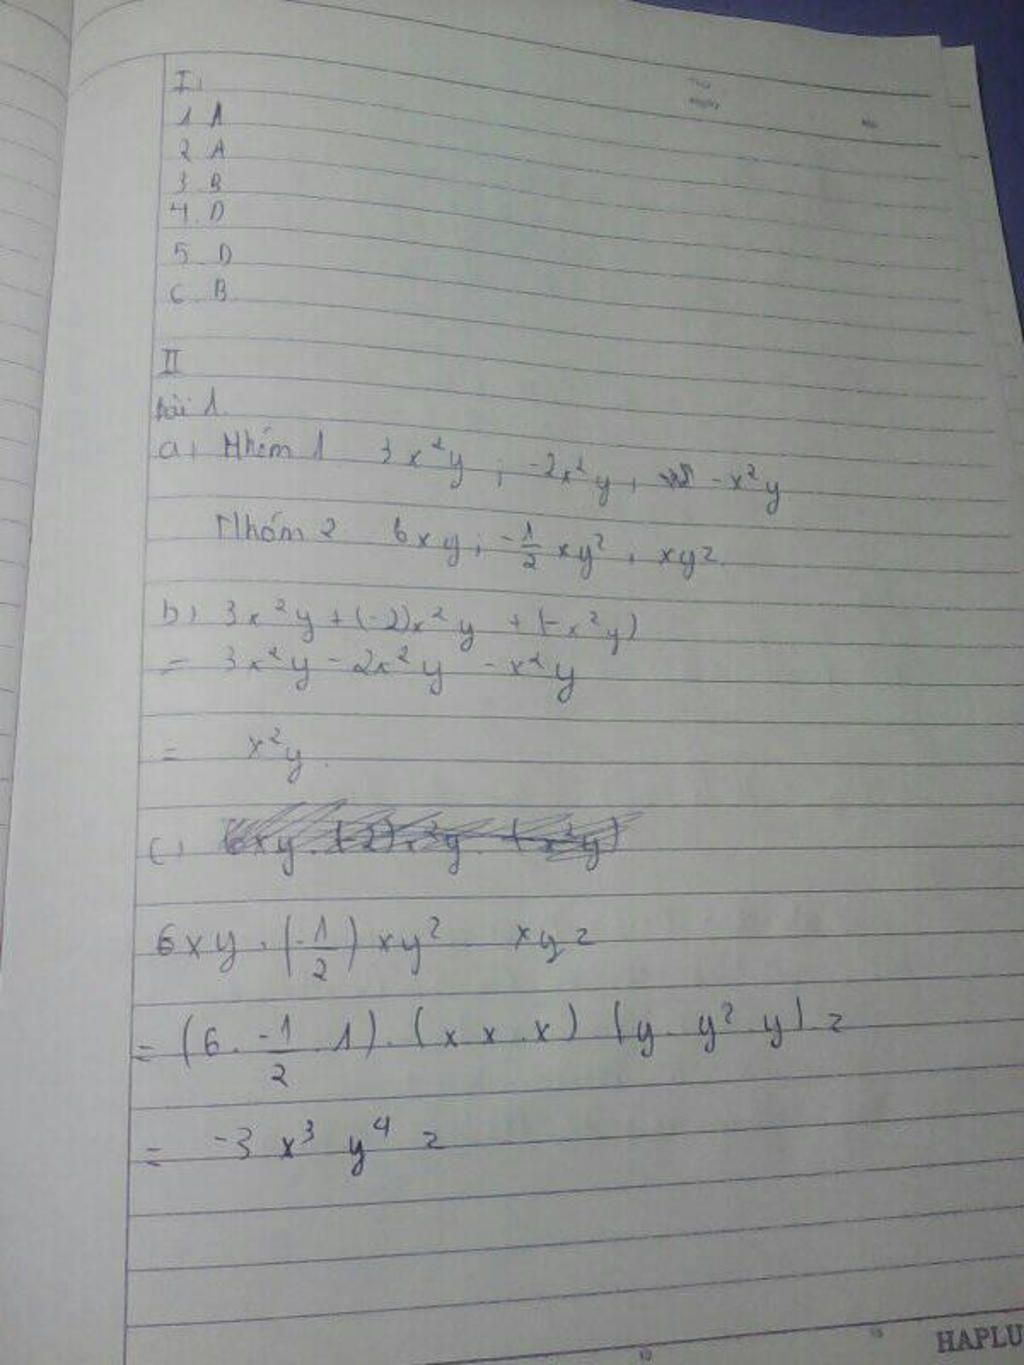 I,
1 A
2 A
3 B
4. D
5 D
6 B
II
bài 1.
a, Nhóm 1 3x²y ; -2x²y, -x²y
Nhóm 2 6xy ; -1/2 xy², xyz.
b, 3x²y + (-2)x²y + (-x²y)
= 3x²y - 2x²y - x²y
= x²y.
c,
6xy . (-1/2) xy² xyz
= (6 . -1/2 . 1) . (x x . x) (y . y² y) z
= -3 x³ y⁴ z
HAPLU